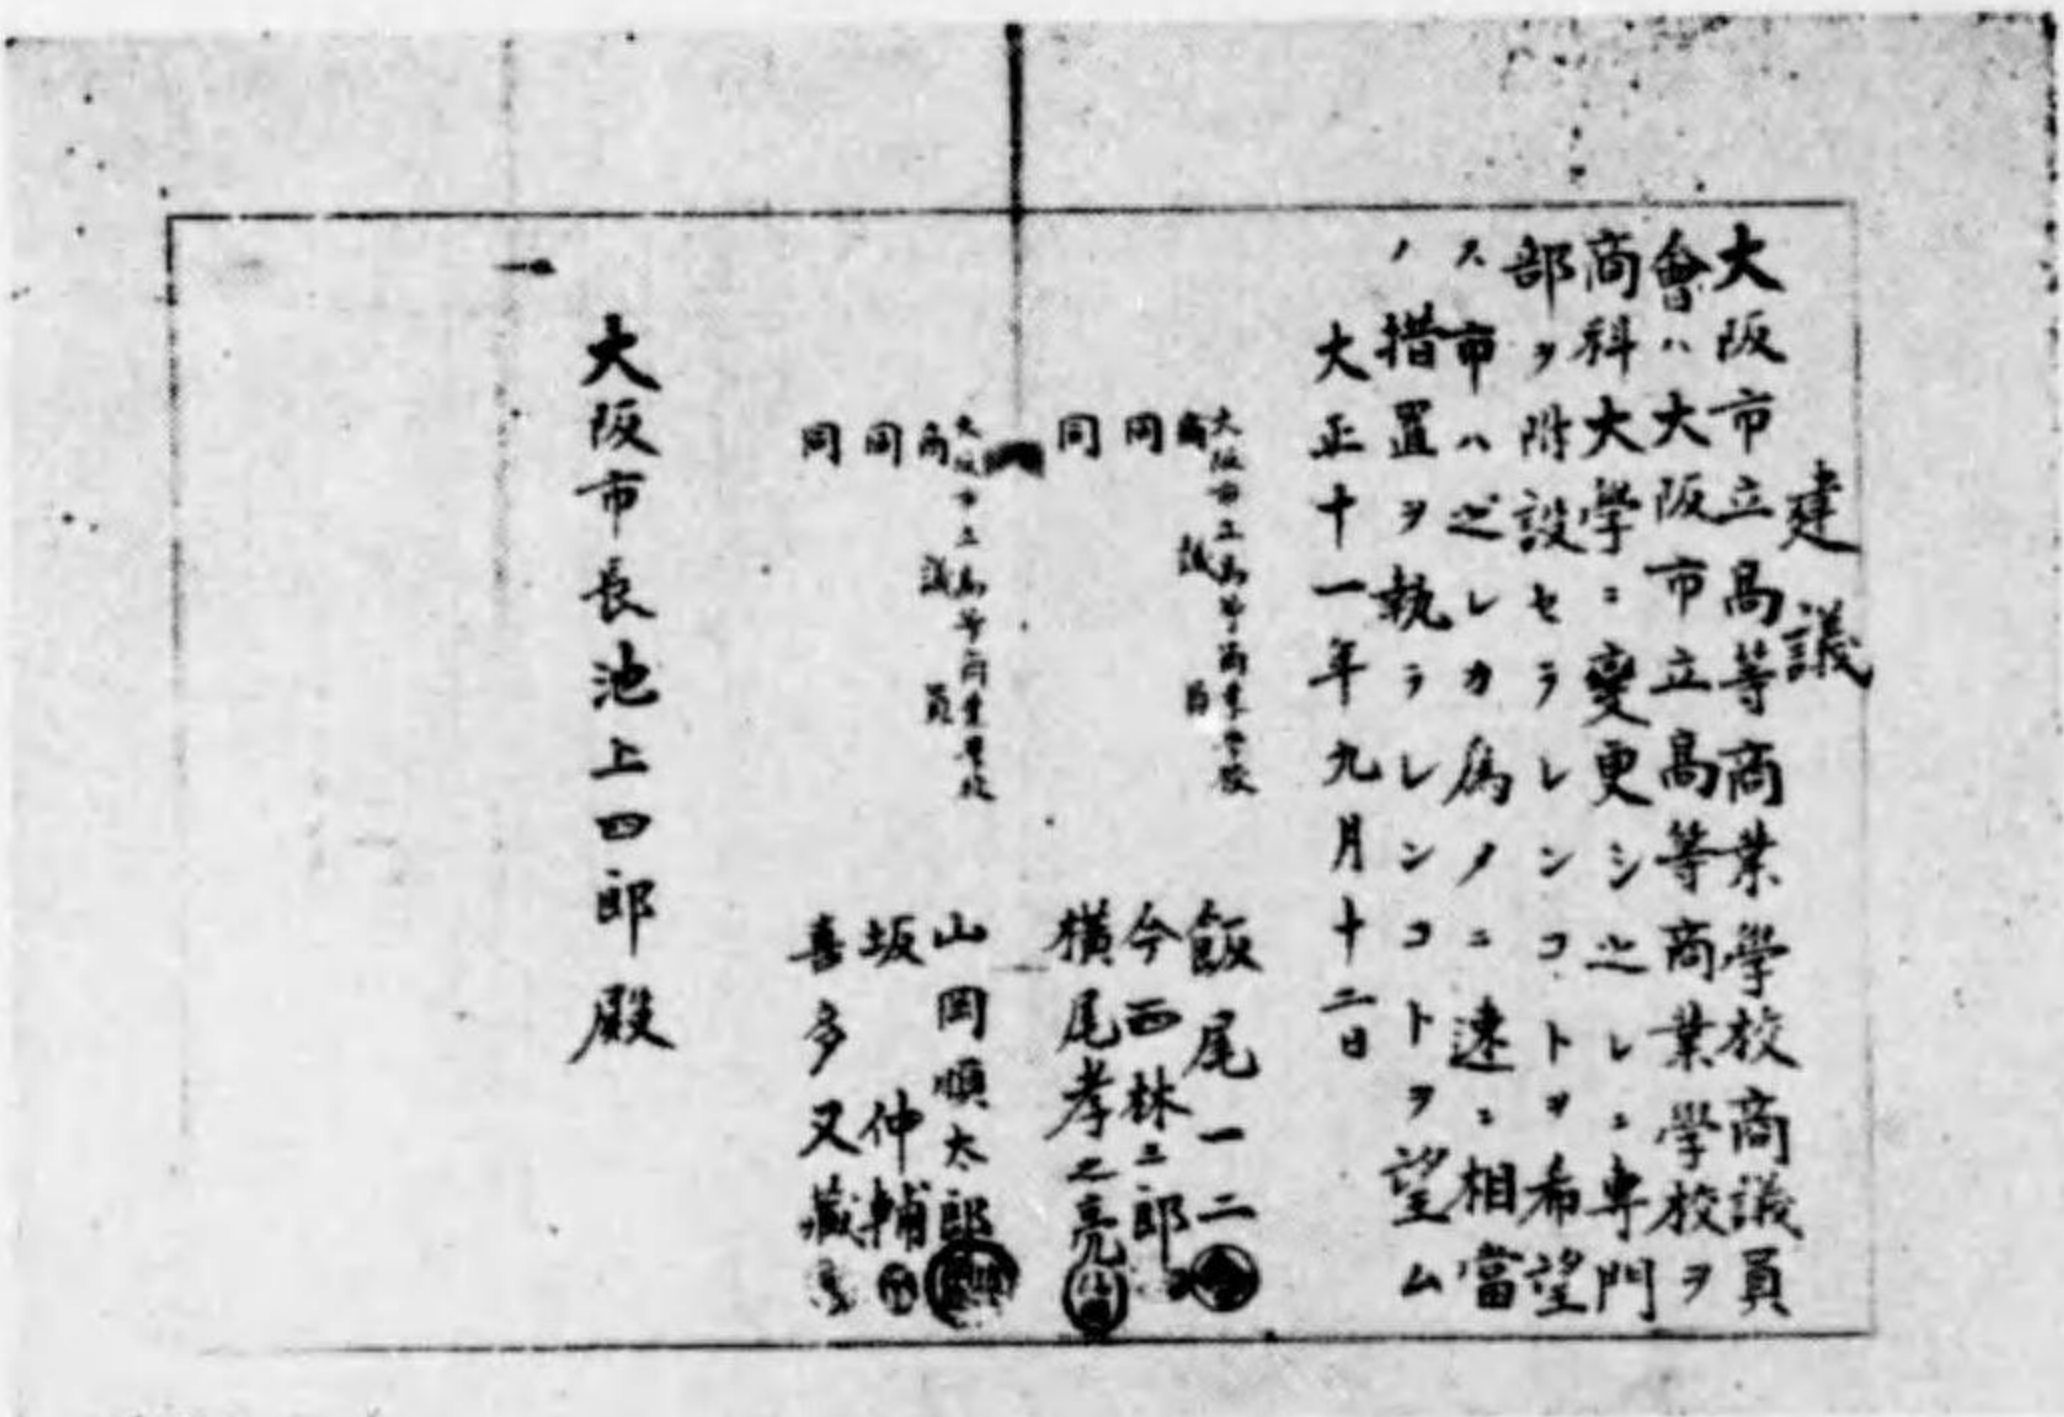 建議
大阪市立高等商業學校商議員
會ハ大阪市立高等商業學校ヲ
商科大學ニ變更シ之レニ專門
部ヲ附設セラレンコトヲ希望
ス市ハ之レカ為メニ速ニ相當
ノ措置ヲ執ラレンコトヲ望ム
大正十一年九月十二日
大阪市立高等商業學校
商議員 飯尾一二
同 今西林三郎
同 横尾孝之亮
大阪市立高等商業學校
商議員 山岡順太郎
同 坂仲輔
同 喜多又藏
大阪市長池上四郎殿